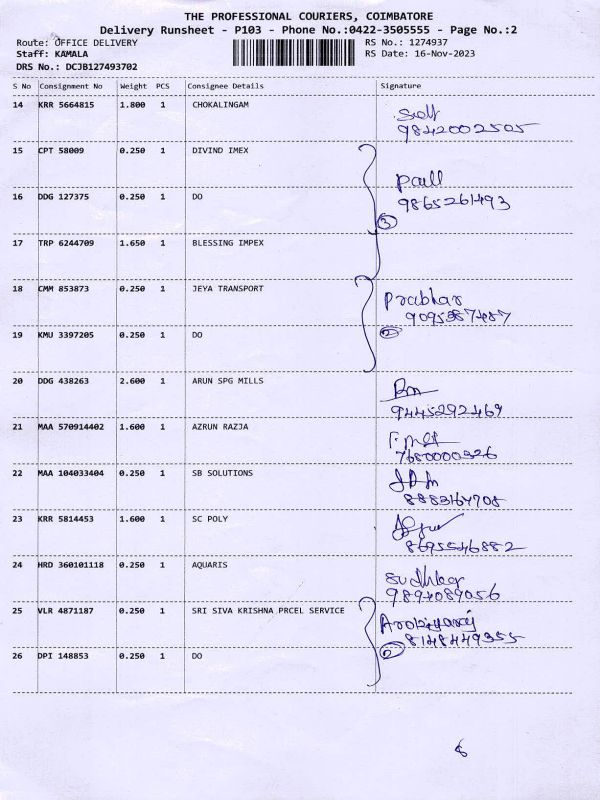 THE PROFESSIONAL COURIERS, COIMBATORE
Delivery Runsheet - P103 - Phone No.:0422-3505555 - Page No.:2
Route: OFFICE DELIVERY RS No.: 1274937
Staff: KAMALA RS Date: 16-Nov-2023
DRS No.: DCJB127493702
S No Consignment No Weight PCS Consignee Details Signature
14 KRR 5664815 1.800 1 CHOKALINGAM
9842002505
15 CPT 58009 0.250 1 DIVIND IMEX
16 DDG 127375 0.250 1 DO
9865261493
3
17 TRP 6244709 1.650 1 BLESSING IMPEX
18 CMM 853873 0.250 1 JEYA TRANSPORT
Prabhar
19 KMU 3397205 0.250 1 DO
2
20 DDG 438263 2.600 1 ARUN SPG MILLS
9445292469
21 MAA 570914402 1.600 1 AZRUN RAZJA
7680000326
22 MAA 104033404 0.250 1 SB SOLUTIONS
23 KRR 5814453 1.600 1 SC POLY
8695546882
24 HRD 360101118 0.250 1 AQUARIS
9894089056
25 VLR 4871187 0.250 1 SRI SIVA KRISHNA PRCEL SERVICE
8148449355
2
26 DPI 148853 0.250 1 DO